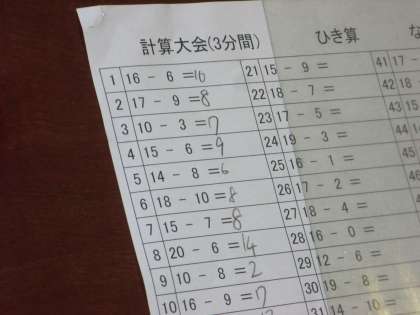 計算大会(3分間) ひき算 な
1 16 - 6 =10 21 15 - 9 = 41 17 -
2 17 - 9 =8 22 18 - 7 = 42 18
3 10 - 3 =7 23 17 - 5 = 43 15
4 15 - 6 =9 24 19 - 3 = 44 1
5 14 - 8 =6 25 16 - 1 = 45
6 18 - 10 =8 26 17 - 2 = 46
7 15 - 7 =8 27 18 - 4 = 47
8 20 - 6 =14 28 16 - 0 = 48
9 10 - 8 =2 29 12 - 6 =
10 16 - 9 =7 30 19 - 8 =
31 14 - 10 =